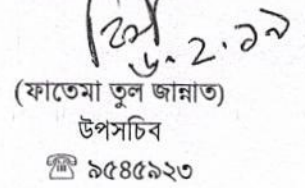 ৬.২.১৯
(ফাতেমা তুল জান্নাত)
উপসচিব
☎ ৯৫৪৫৯২৩